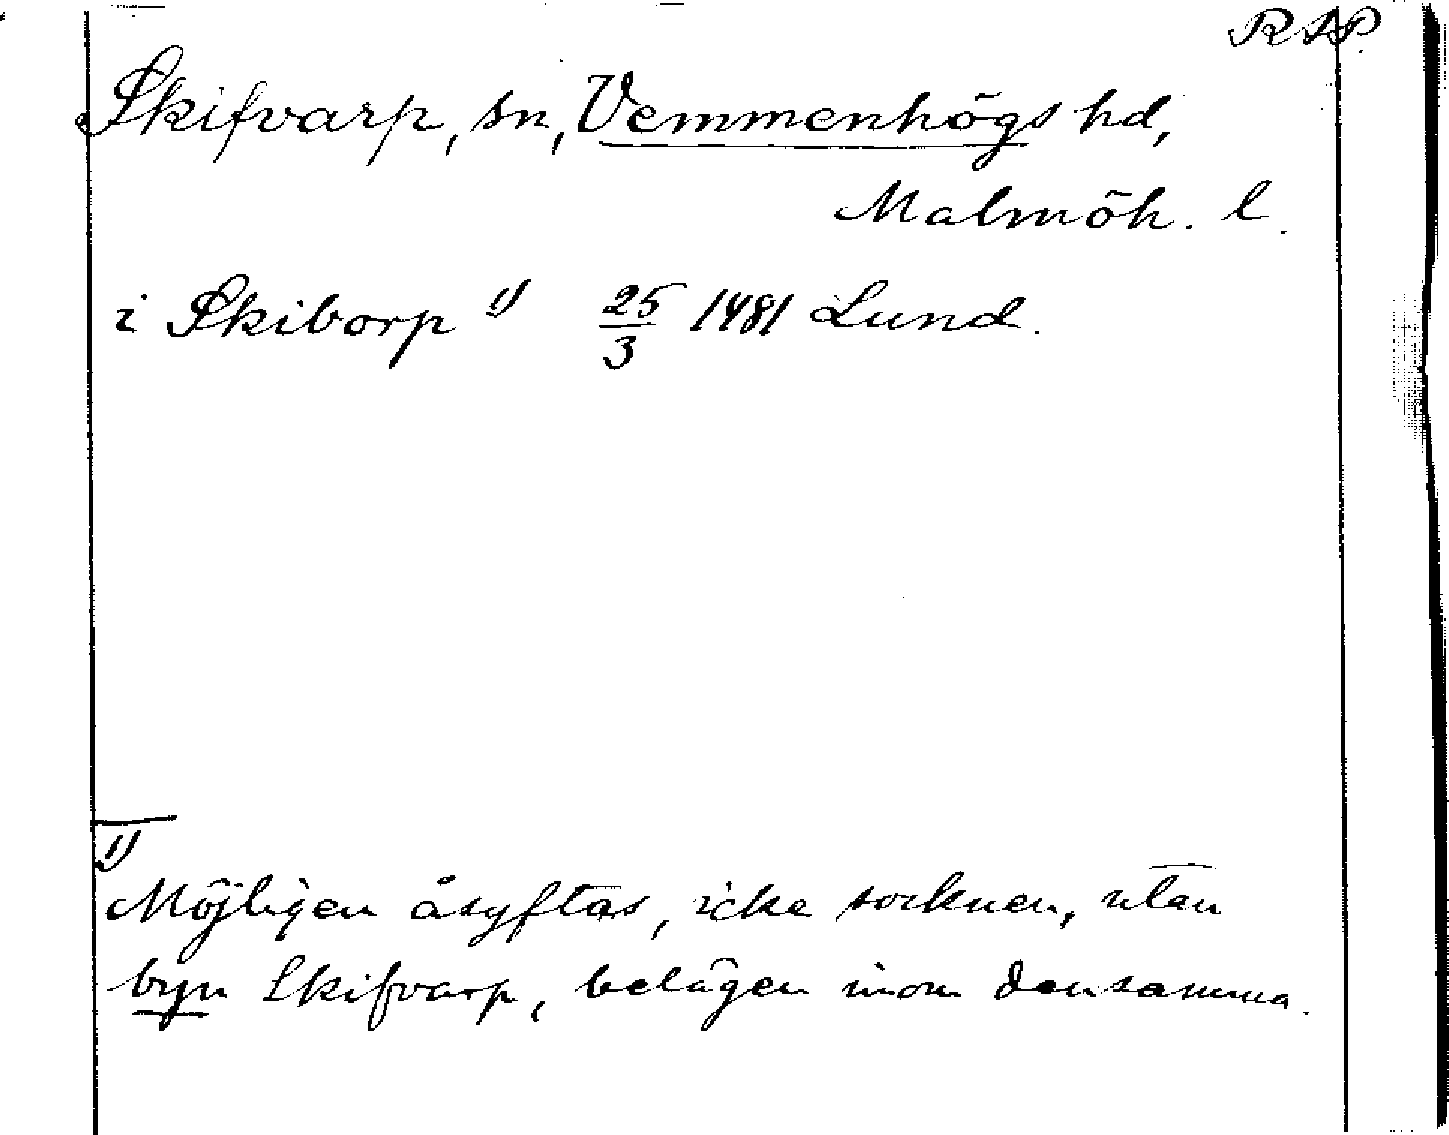 RAP.
Skifvarp, sn, Vemmenhögs hd,
Malmöh. l.
i Skiborp 1) 25/3 1481 Lund.
1)
Möjligen åsyftas, icke socknen, utan
byn Skifvarp, belägen inom densamma.